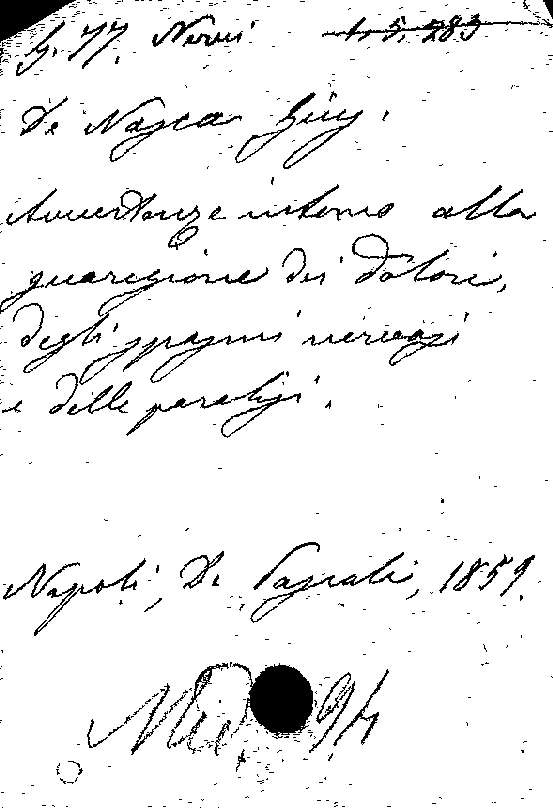 G. 77. Nervi 1. 5. 283
De Nasca Giu.
Avvertenze intorno alla
guarigione dei dolori,
degli spasmi nervosi
e delle paralisi.
Napoli, De Pascale, 1859.
Med. 94